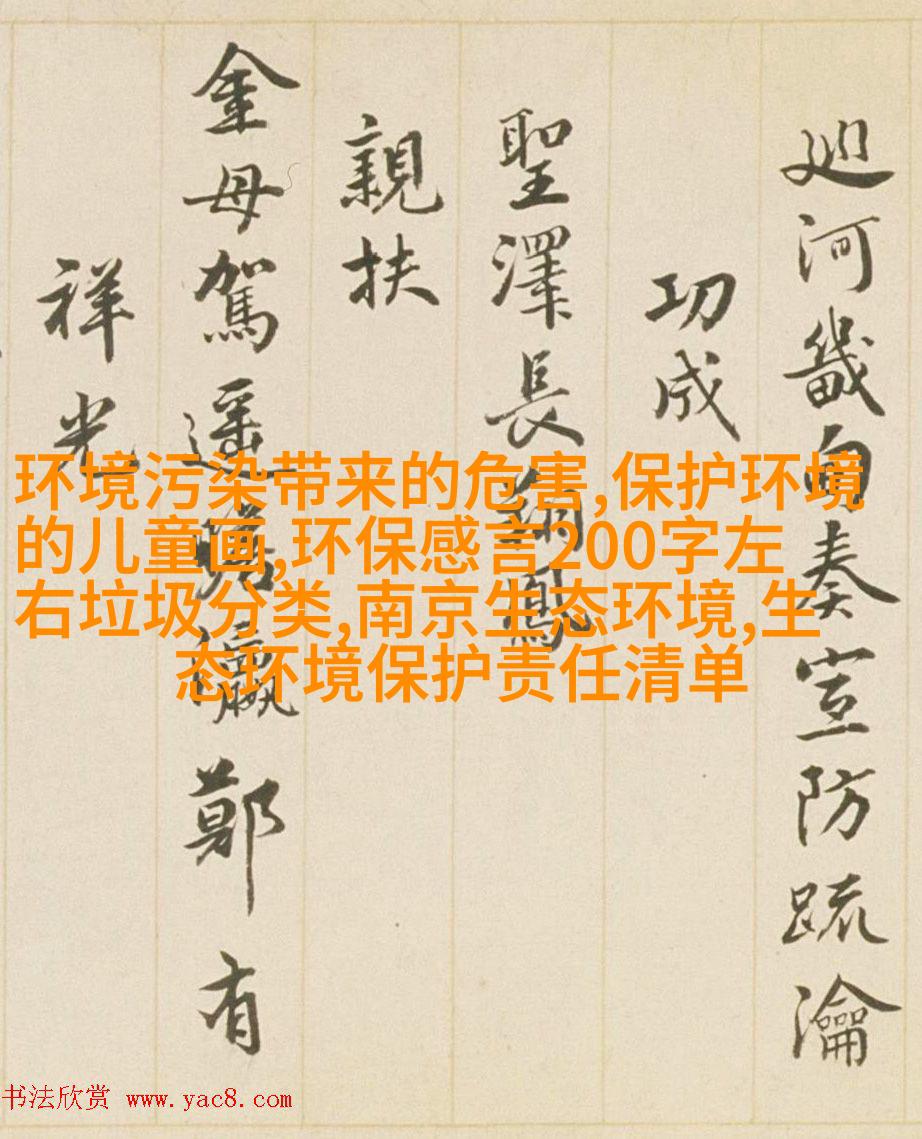 廵河畿甸奏宣防疏瀹
功成
聖澤長翔鳳
親扶
金母駕遥瀛鄭有
祥光
环境污染带来的危害,保护环境
的儿童画,环保感言200字左
右垃圾分类,南京生态环境,生
态环境保护责任清单
书法欣赏 www.yac8.com